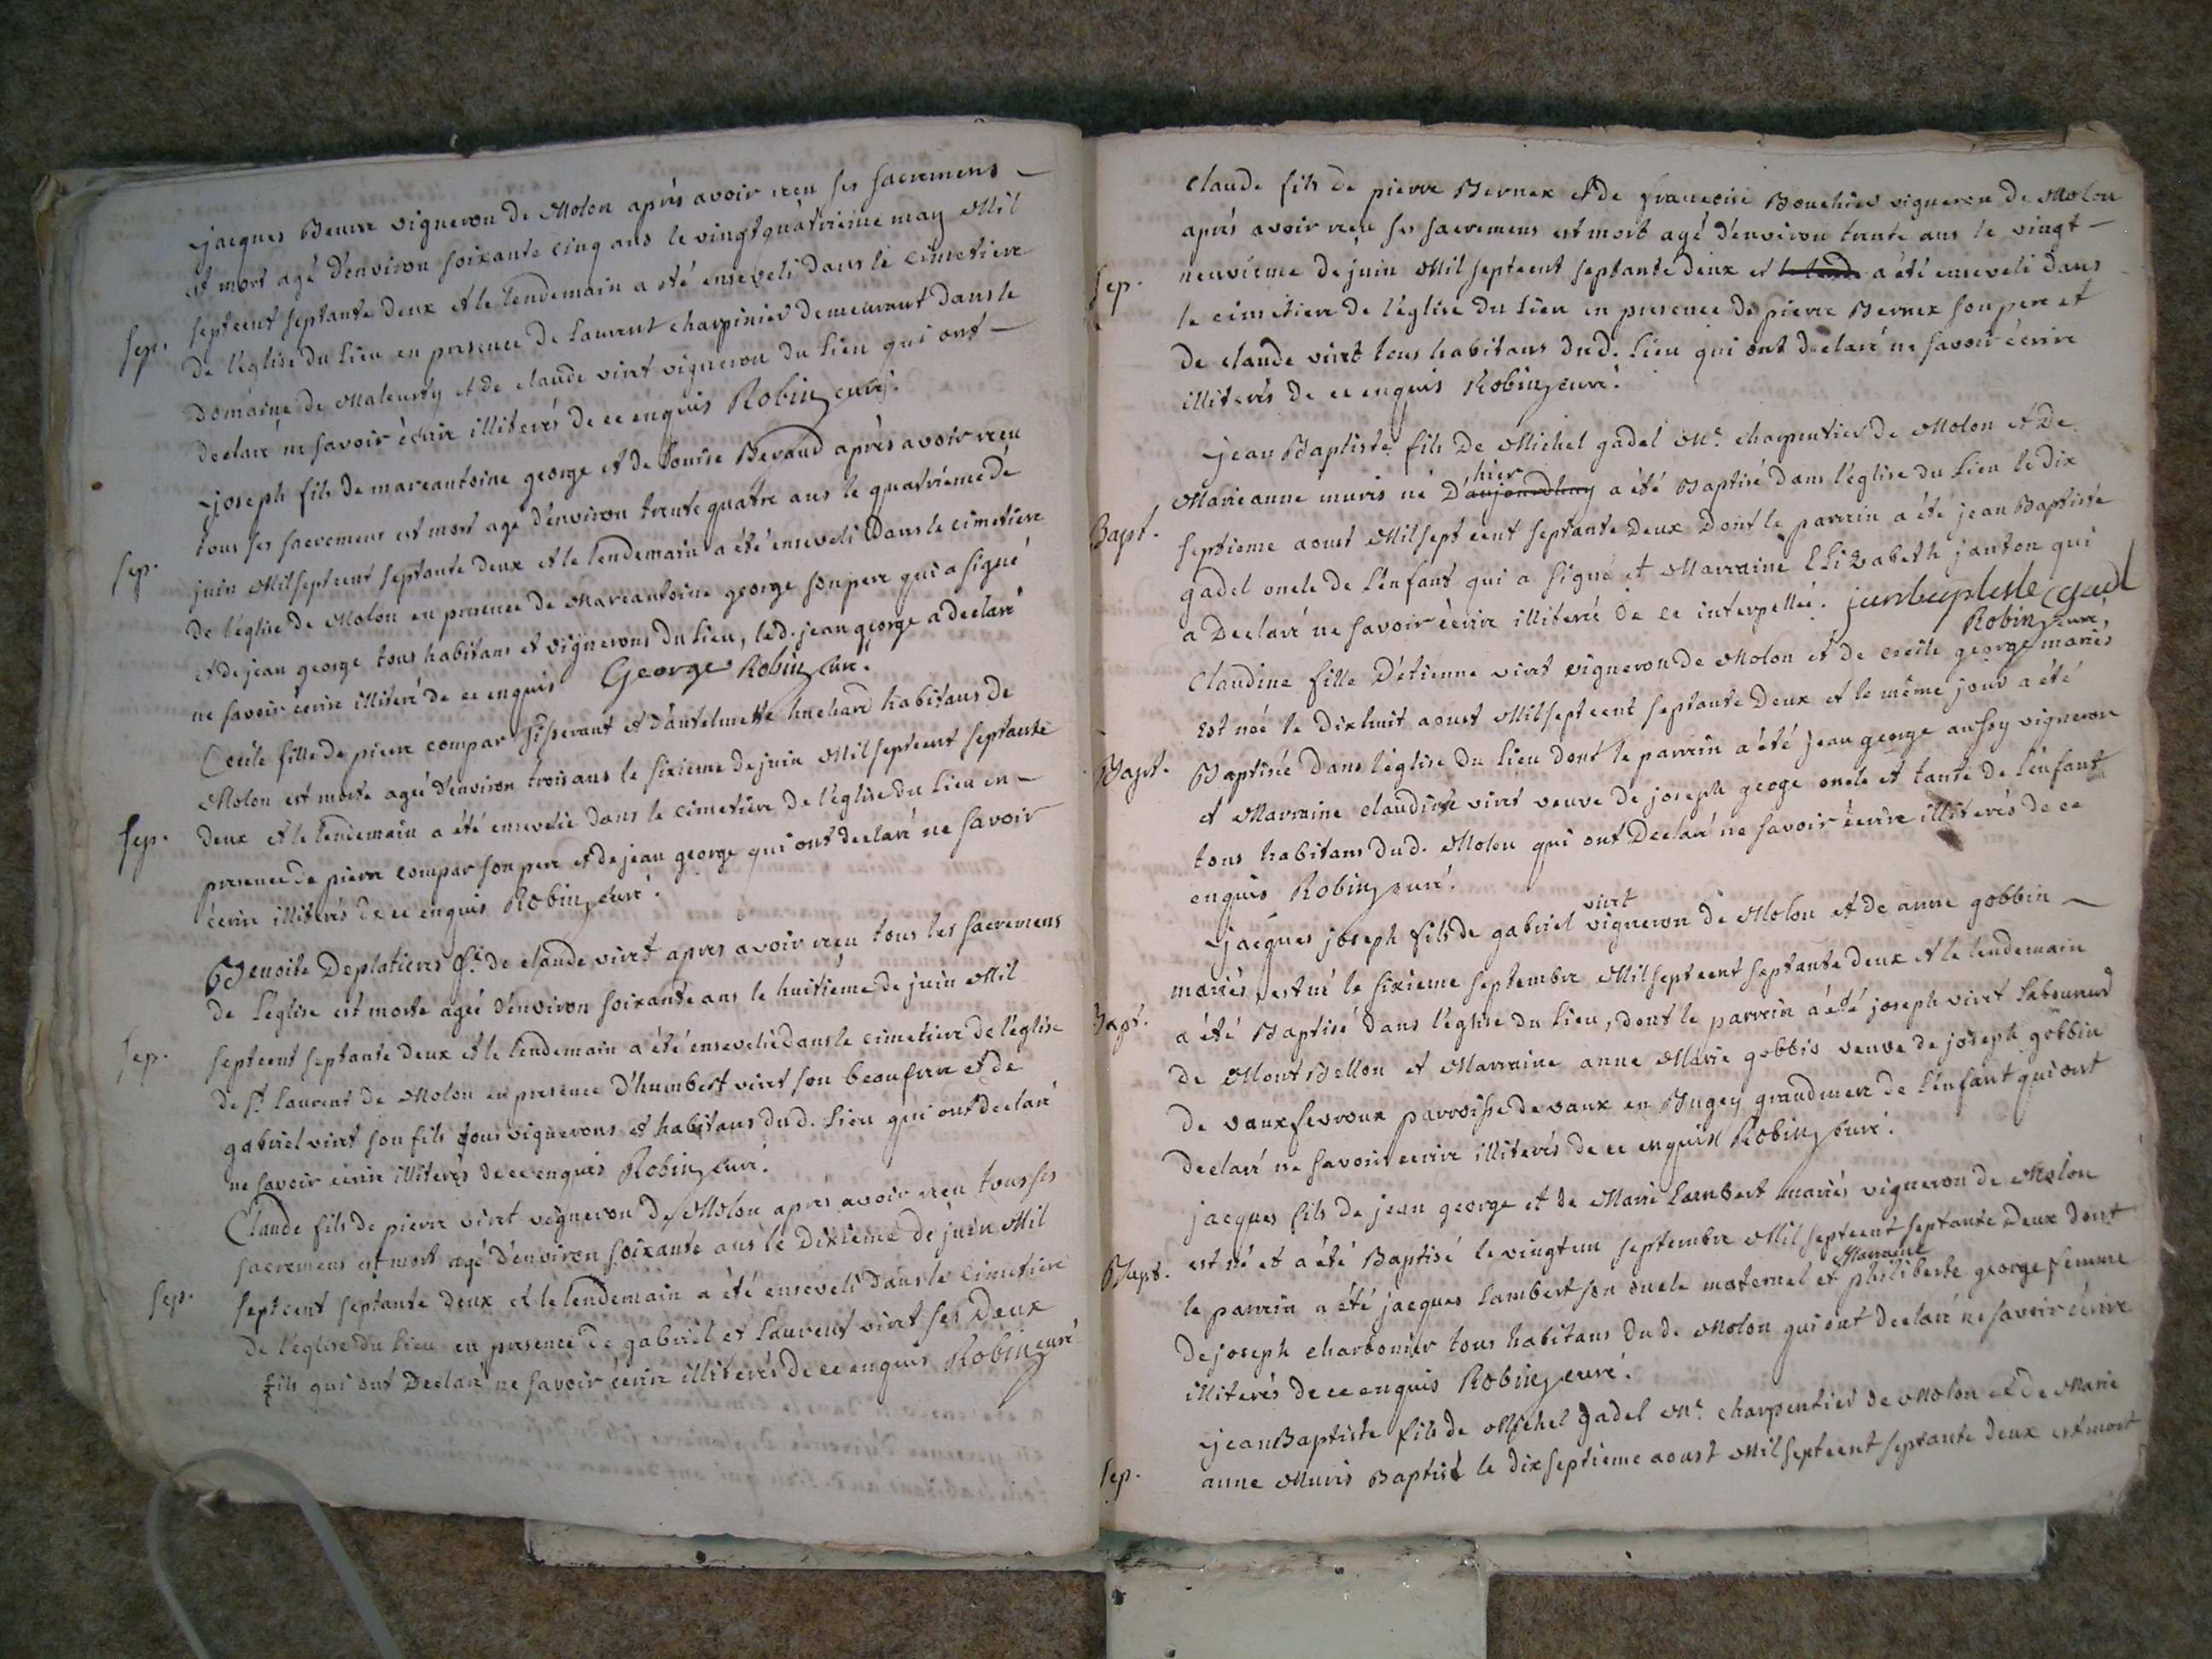 jacques Beurre vigneron de Molon après avoir reçu ses sacremens
est mort agé d'environ soixante cinq ans le vingtquatrieme may Mil
sep. septcent septante deux et le lendemain a été enseveli dans le cimetiere
de l'église du lieu en presence de laurent charpinier demeurant dans le
domaine de et de claude viret vigneron du lieu qui ont
declaré ne savoir ècrire illiterés de ce enquis Robin curé.
joseph fils de marcantoine george et de Louise Beraud après avoir reçu
tous ses sacremens est mort agé d'environ trente quatre ans le quatriéme de
sep. juin Mil septcent septante deux et le lendemain a été enseveli dans le cimetiere
de l'église de Molon en presence de Marcantoine george son pere qui a signé
et de jean george tous habitans et vignerons du lieu, led. jean george a declaré
ne savoir écrire illiteré de ce enquis George Robin curé.
Cecile fille de pierre compar tisserant et d'antelmette huchard habitans de
Molon est morte ageé d'environ trois ans le sixieme de juin Mil septcent septante
sep. deux et le lendemain a été ensevelie dans le cimetiere de l'église du lieu en
presence de pierre compar son pere et de jean george qui ont declaré ne savoir
écrire illiterés de ce enquis Robin curé.
Benoite Deplatieres fe. de claude viret apres avoir reçu tous les sacremens
de l'église est morte ageé d'environ soixante ans le huitiéme de juin Mil
sep. septcent septante deux et le lendemain a été ensevelie dans le cimetiere de l'église
de st. laurent de Molon en presence d'humbert viret son beaufrere et de
gabriel viret son fils tous vignerons et habitans dud. lieu qui ont declaré
ne savoir écrire illiterés de ce enquis Robin curé.
Claude fils de pierre viret vigneron de Molon après avoir reçu tous ses
sacremens est mort agé d'environ soixante ans le dixieme de juin Mil
sep. septcent septante deux et le lendemain a été enseveli dans le cimetiere
de l'église du lieu en presence de gabriel et laurent viret ses deux
fils qui ont declaré ne savoir écrire illiterés de ce enquis Robin curé
claude fils de pierre Bernex et de francoise Bouchier vigneron de Molon
après avoir reçu ses sacremens est mort agé d'environ trente ans le vingt
sep. neuvieme de juin Mil septcent septante deux et le lende a été enseveli dans
le cimetiere de l'église du lieu en presence de pierre Bernex son pere et
de claude viret tous habitans dud. lieu qui ont declaré ne savoir écrire
illiterés de ce enquis Robin curé.
jean Baptiste fils de Michel gadel Me. charpentier de Molon et de
hier
Marieanne muris né d'aujourdhuy a été Baptisé dans l'église du lieu le dix
Bapt. septieme aoust Mil sept cent septante deux dont le parrein a été jean Baptiste
gadel oncle de l'enfant qui a signé et Marraine Elizabeth janton qui
a declaré ne savoir écrire illiteré de ce interpelleé. janbaptiste gadel
Robin curé,
claudine fille d'étienne viret vigneron de Molon et de cecile george mariés
est née le dixhuit aoust Mil septcent septante deux et le même jour a été
Bapt. Baptisée dans l'église du lieu dont le parrein a été jean george aussy vigneron
et Marraine claudine viret veuve de joseph geoge oncle et tante de l'enfant
tous habitans dud. Molon qui ont declaré ne savoir écrire illiterés de ce
enquis Robin curé.
viret
jacques joseph fils de gabriel vigneron de Molon et de anne gobbin
mariés, est né le sixieme septembre Mil septcent septante deux et le lendemain
Bapt. a été Baptisé dans l'église du lieu, dont le parrein a été joseph viret laboureur
de Mont Bellon et Marraine anne Marie gobbis veuve de joseph gobbin
de vaux fevroux parroisse de vaux en Bugey grandmere de l'enfant qui ont
declaré ne savoir ecrire illiterés de ce enquis Robin curé.
jacques fils de jean george et de Marie Lambert mariés vigneron de Molon
Bapt. est né et a été Baptisé le vingtun septembre Mil septcent septante deux dont
Marraine
le parrein a été jacques lambert son oncle maternel et philiberte george femme
de joseph charbonier tous habitans dud. Molon qui ont declaré ne savoir écrire
illiterés de ce enquis Robin curé.
jean Baptiste fils de Michel gadel Me. charpentier de Molon et de Marie
sep. anne Muris Baptisé le dixseptieme aoust Mil septcent septante deux est mort